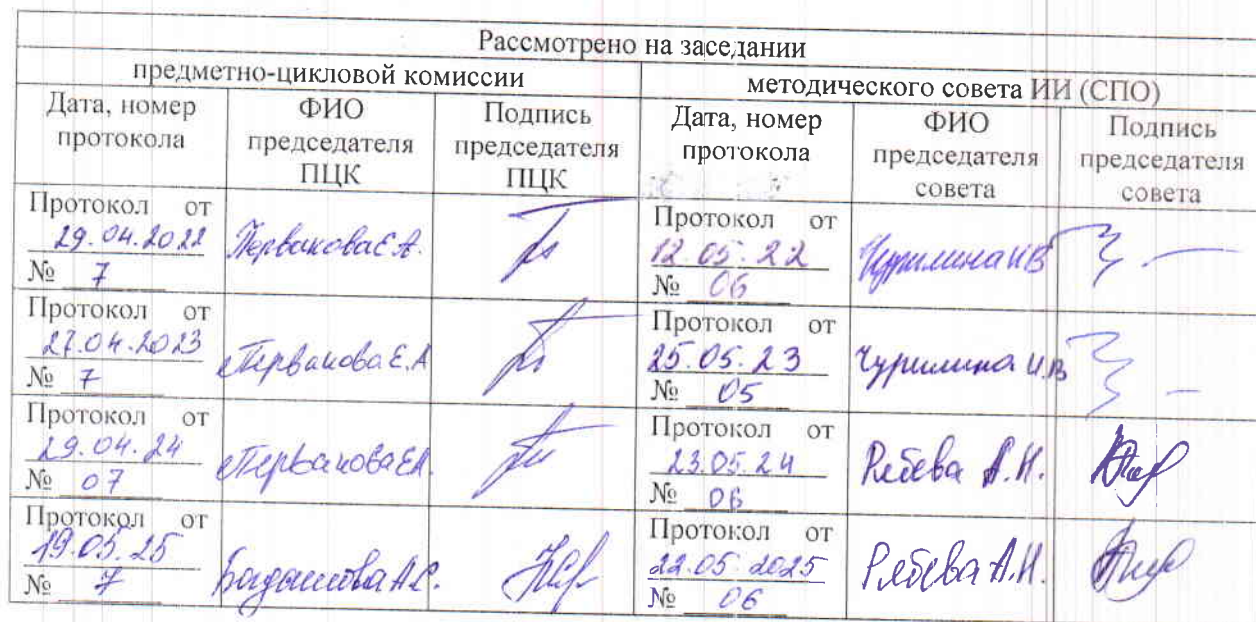 Рассмотрено на заседании
предметно-цикловой комиссии
методического совета ИИ (СПО)
Дата, номер
протокола
ФИО
председателя
ПЦК
Подпись
председателя
ПЦК
Дата, номер
протокола
ФИО
председателя
совета
Подпись
председателя
совета
Протокол от
29.04.2022
№ 7
Первакова Е.А.
Протокол от
12.05.22
№ 06
Чурилина И.В
Протокол от
27.04.2023
№ 7
Первакова Е.А
Протокол от
25.05.23
№ 05
Чурилина И.В
Протокол от
29.04.24
№ 07
Первакова ЕА
Протокол от
23.05.24
№ 06
А.Н.
Протокол от
19.05.25
№ 7
Протокол от
22.05 2025
№ 06
А.Н.